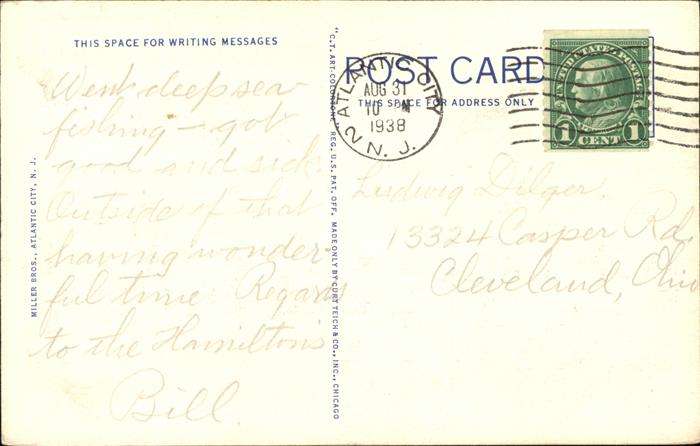 THIS SPACE FOR WRITING MESSAGES
Went deep sea
fishing — got
good and sick.
Outside of that
having wonder
ful time. Regards
to the Hamilton's
Bill
MILLER BROS., ATLANTIC CITY, N. J.
"C.T. ART-COLORTONE" REG. U.S. PAT. OFF. MADE ONLY BY CURT TEICH & CO., INC., CHICAGO
POST CARD
THIS SPACE FOR ADDRESS ONLY
ATLANTIC CITY
AUG 31
10 M
1938
2 N. J.
UNITED STATES POSTAGE
1 CENT 1
Ludwig Dilger
13324 Casper Rd.
Cleveland, Ohio